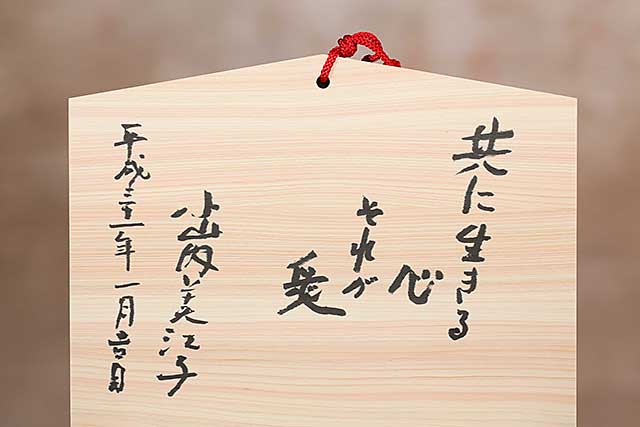 共に生きる
心
それが
愛
小山内美江子
平成三十一年一月吉日